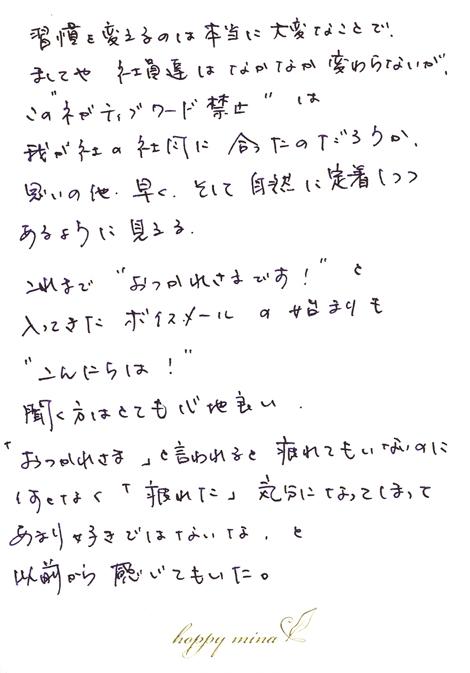 習慣を変えるのは本当に大変なことで、
ましてや 社員達は なかなか変わらないが、
この"ネガティブワード禁止"は
我が社の社内に合ったのだろうか、
思いの他、早く、そして自然に定着しつつ
あるように見える。
これまで"おつかれさまです！"と
入ってきた ボイスメールの始まりも
"こんにちは！"
聞く方はとても心地良い。
「おつかれさま」と言われると 疲れてもいないのに
何となく「疲れた」気分になってしまって
あまり好きではないな、と
以前から感じてもいた。
happy mina